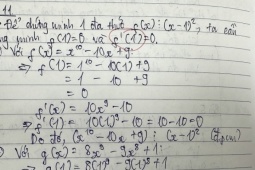 Để chứng minh 1 đa thức f(x) ⋮ (x-1)², ta cần
minh f(1)=0 và f'(1)=0.
Với f(x) = x¹⁰ - 10x + 9:
⇒ f(1) = 1¹⁰ - 10(1) + 9
= 1 - 10 + 9
= 0
f'(x) = 10x⁹ - 10
⇒ f'(1) = 10(1)⁹ - 10 = 10 - 10 = 0
Do đó, (x¹⁰ - 10x + 9) ⋮ (x-1)² (đpcm)
Với g(x) = 8x⁹ - 9x⁸ + 1:
⇒ g(1) = 8(1)⁹ - 9(1)⁸ + 1